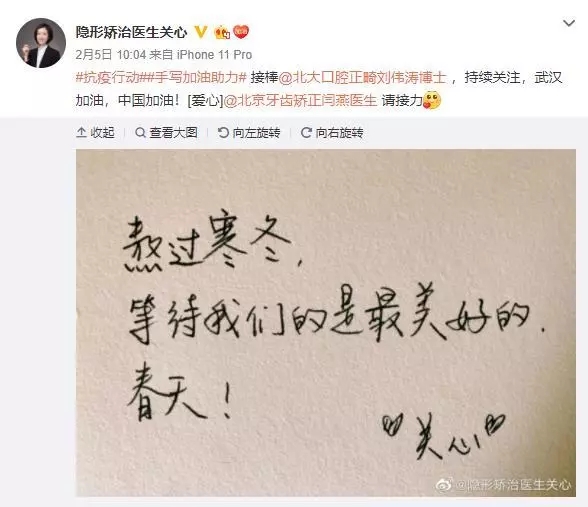 隐形矫治医生关心
2月5日 10:04 来自 iPhone 11 Pro
#抗疫行动##手写加油助力# 接棒@北大口腔正畸刘伟涛博士 ，持续关注，武汉
加油，中国加油！[爱心]@北京牙齿矫正闫燕医生 请接力
收起 查看大图 向左旋转 向右旋转
熬过寒冬，
等待我们的是最美好的.
春天！
"关心"
@隐形矫治医生关心